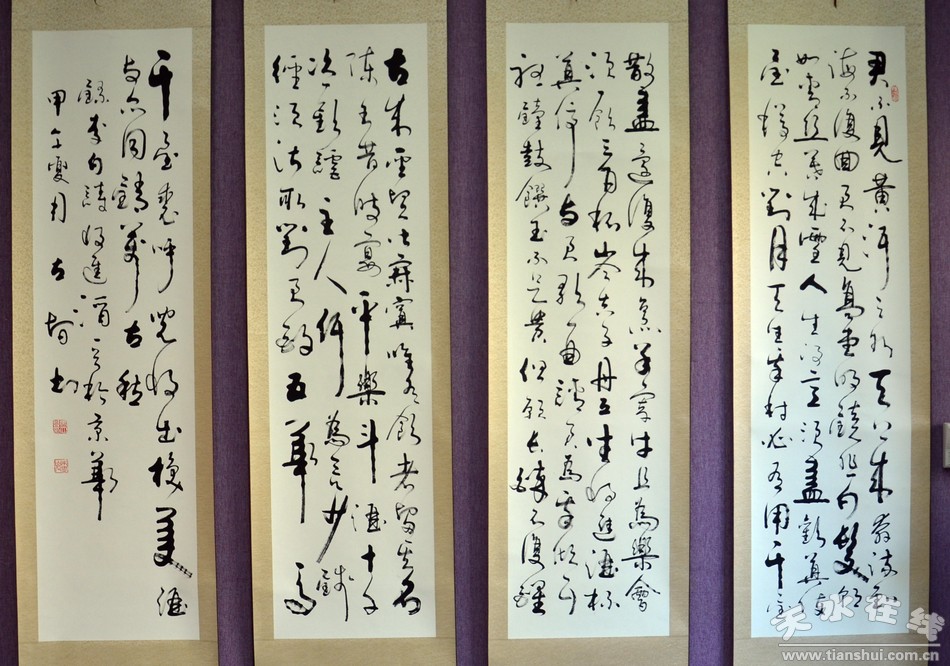 君不見黃河之水天上來奔流到
海不復回君不見高堂明鏡悲白髮朝
如青絲暮成雪人生得意須盡歡莫使
金樽空對月天生我材必有用千金
散盡還復來烹羊宰牛且為樂會
須飲三百杯岑夫子丹丘生將進酒杯
莫停與君歌一曲請君為我傾耳
聽鐘鼓饌玉不足貴但願長醉不復醒
古來聖賢皆寂寞唯有飲者留其名
陳王昔時宴平樂斗酒十千
恣歡謔主人何為言少錢
徑須沽取對君酌五華馬
千金裘呼兒將出換美酒
與爾同銷萬古愁
錄李白詩將進酒書於京華
甲午夏月
天水在线
www.tianshui.com.cn